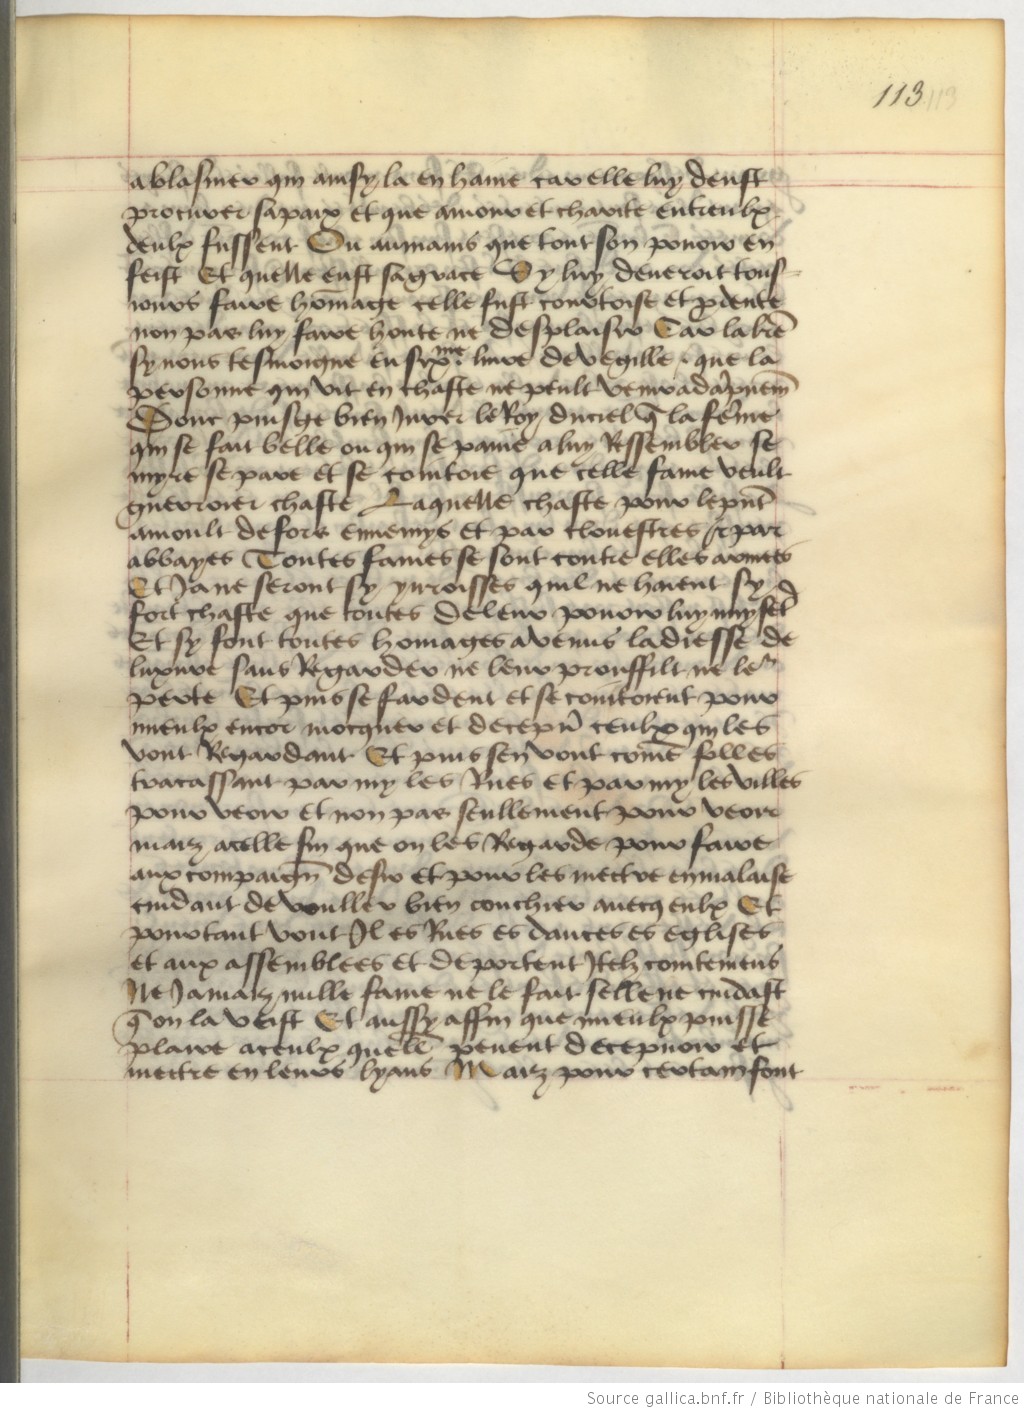 113 113
a blasmer qui ainsy la en haine car elle luy deust
procurer sa paix et que amour et charite entreulx
deulx fussent Ou aumains que tout son pouoir en
feist Et quelle eust sa grace Sy luy deueroit tous
iours faire hommage celle fust courtoise et prudente
non pas luy faire honte ne desplaisir Car la
sy nous tesmoigne en sixme liure de vegille que la
personne qui vit en chaste ne peult venir a
Donc puis ge bien Jurer le Roy du ciel q la feme
qui se fait belle ou qui se paine a luy Ressembler se
myre se pare et se cointoie que celle fame veult
guerroier chaste Laquelle chaste pour lepnt
a moult de fors ennemys et par clouestres & par
abbayes Toutes fames se sont contre elles armees
Et Ja ne seront sy yuroisses quil ne haient sy
fort chaste que toutes de leur pouoir luy
Et sy font toutes homages a venus la diesse de
luxure sans Regarder ne leur prouffilt ne leur
perte Et puis se fardent et se cointoient pour
mieulx encor mocquer et decepu ceulx qui les
vont Regardant Et puis sen vont come folles
tracassant par my les Rues et par my les villes
pour veoir et non pas seullement pour veoir
maiz a celle fin que on les Regarde pour faire
aux compaign desir et pour les mettre en malaise
cuidant de vouller bien couchier auecq eulx Et
pourtant vont Jl es Rues es dances es eglises
et aux assemblees et deportent Jtelz contemens
Ne Jamaiz nulle fame ne le fait selle ne cuidast
q on la veist Et aussy affin que mieulx puisse
plaire a ceulx quell peuent decepuoir et
mettre en leurs lyans Maiz pour certain font
Source gallica.bnf.fr / Bibliothèque nationale de France